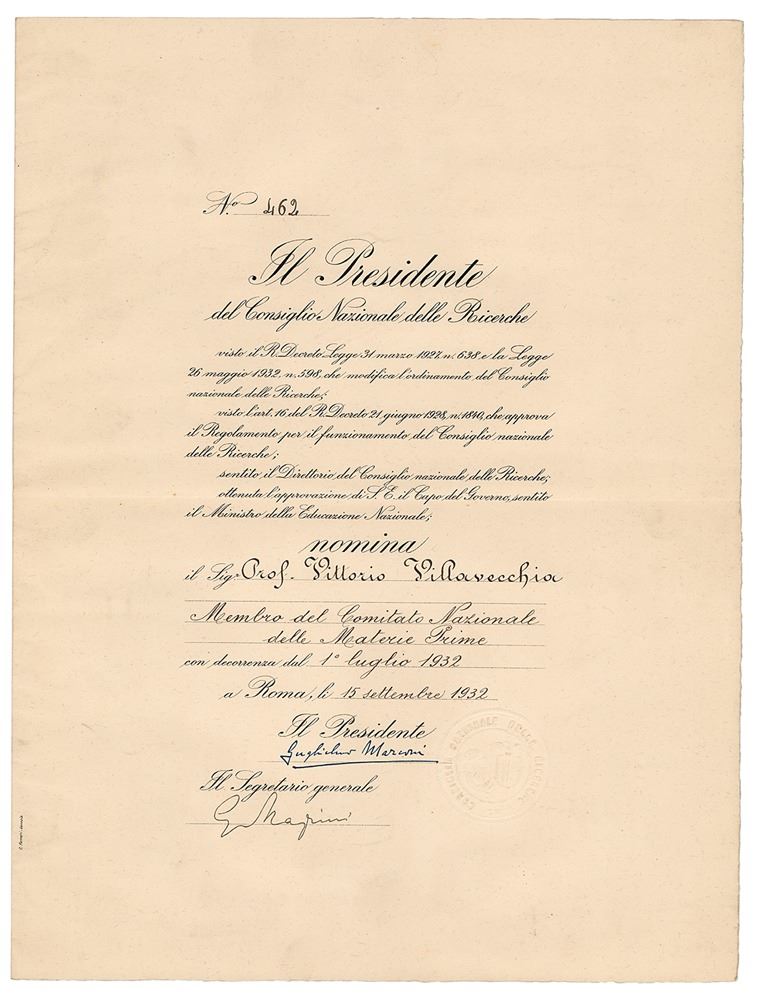 N.o 462
Il Presidente
del Consiglio Nazionale delle Ricerche
visto il R. Decreto Legge 31 marzo 1927 n. 638 e la Legge
26 maggio 1932 n. 598, che modifica l'ordinamento del Consiglio
nazionale delle Ricerche;
visto l'art. 16 del R. Decreto 21 giugno 1928, n. 1840, che approva
il Regolamento per il funzionamento del Consiglio nazionale
delle Ricerche;
sentito il Direttorio del Consiglio nazionale delle Ricerche;
ottenuta l'approvazione di S. E. il Capo del Governo, sentito
il Ministro della Educazione Nazionale;
nomina
il Sig. Prof. Vittorio Villavecchia
Membro del Comitato Nazionale
delle Materie Prime
con decorrenza dal 1° luglio 1932
a Roma, li 15 settembre 1932
Il Presidente
Guglielmo Marconi
Il Segretario generale
G. Magrini
CONSIGLIO NAZIONALE DELLE RICERCHE